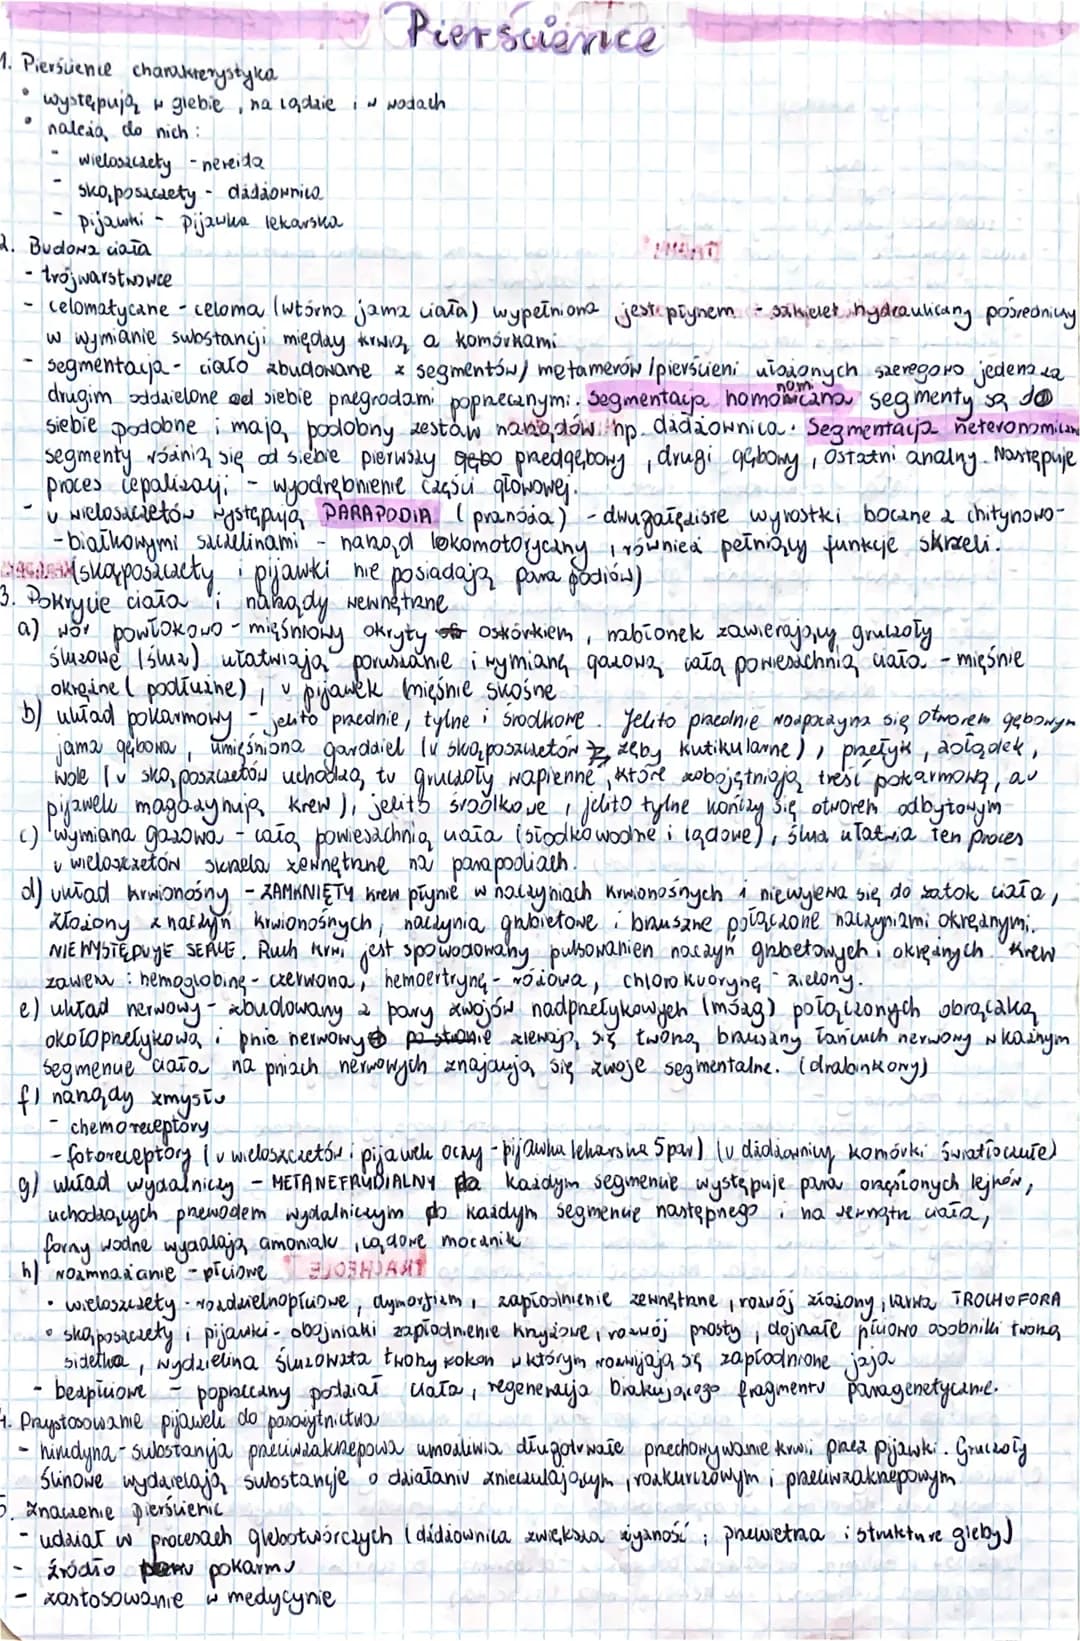 Pierścienice
1. Pierścienie charakterystyka
• występują w glebie, na lądzie i w wodach
• należą do nich:
- wieloszczety - nereida
- skąposzczety - dżdżownica
- pijawki - pijawka lekarska
2. Budowa ciała
- trójwarstwowce
- celomatyczne - celoma (wtórna jama ciała) wypełniona jest płynem - szkielet hydrauliczny pośredniczy
w wymianie substancji między krwią a komórkami
- segmentacja - ciało zbudowane z segmentów/ metamerów/pierścieni ułożonych szeregowo jeden za
drugim oddzielone od siebie przegrodami poprzecznymi. Segmentacja homonomiczna segmenty są do
siebie podobne i mają podobny zestaw narządów np. dżdżownica. Segmentacja heteronomiczna
segmenty różnią się od siebie pierwszy przedgębowy, drugi gębowy, ostatni analny. Następuje
proces cepalizacji - wyodrębnienie części głowowej.
- u wieloszczetów występują PARAPODIA (pranóża) - dwugałęziste wyrostki boczne z chitynowo-
-białkowymi szczecinami - narząd lokomotoryczny, również pełniący funkcje skrzeli.
(skąposzczety i pijawki nie posiadają parapodiów)
3. Pokrycie ciała i narządy wewnętrzne
a) wór powłokowo-mięśniowy okryty oskórkiem, nabłonek zawierający gruczoły
śluzowe (śluz) ułatwiają poruszanie i wymianę gazową całą powierzchnią ciała - mięśnie
okrężne (podłużne), u pijawek mięśnie skośne
b) układ pokarmowy - jelito przednie, tylne i środkowe. Jelito przednie rozpoczyna się otworem gębowym
jama gębowa, umięśniona gardziel (u skąposzczetów zęby kutikularne), przełyk, żołądek,
wole (u skąposzczetów uchodzą tu gruczoły wapienne, które zobojętniają treść pokarmową, a u
pijawek magazynują krew), jelito środkowe, jelito tylne kończy się otworem odbytowym
c) wymiana gazowa - całą powierzchnią ciała (słodkowodne i lądowe), śluz ułatwia ten proces
u wieloszczetów skrzela zewnętrzne na parapodiach.
d) układ krwionośny - ZAMKNIĘTY krew płynie w naczyniach krwionośnych i niewylewa się do zatok ciała,
złożony z naczyń krwionośnych, naczynia grzbietowe i brzuszne połączone naczyniami okrężnymi.
NIE WYSTĘPUJE SERCE. Ruch krwi jest spowodowany pulsowaniem naczyń grzbietowych i okrężnych. Krew
zawiera: hemoglobinę - czerwona, hemoertrynę - różowa, chlorokuorynę - zielony.
e) układ nerwowy - zbudowany z pary zwojów nadprzełykowych (mózg) połączonych obrączką
okołoprzełykową i pnie nerwowy tworzą brzuszny łańcuch nerwowy w każnym
segmencie ciała na pniach nerwowych znajdują się zwoje segmentalne. (drabinkowy)
f) narządy zmysłu
- chemoreceptory
- fotoreceptory (u wieloszczetów i pijawek oczy - pijawka lekarska 5 par) (u dżdżownicy komórki światłoczułe)
g) układ wydalniczy - METANEFRUDIALNY każdym segmencie występuje para orzęsionych lejków,
uchodzących przewodem wydalniczym do każdym segmencie następnego i na zewnątrz ciała,
formy wodne wydalają amoniak, lądowe mocznik
h) rozmnażanie - płciowe
• wieloszczety - rozdzielnopłciowe, dymorfizm, zapłodnienie zewnętrzne, rozwój złożony, larwa TROCHOFORA
• skąposzczety i pijawki - obojniaki zapłodnienie krzyżowe, rozwój prosty, dojrzałe płciowo osobniki tworzą
siodełka, wydzielina śluzowata tworzy kokon w którym rozwijają są zapłodnione jaja
- bezpłciowe - poprzeczny podział ciała, regeneracja brakującego fragmentu paragenetycznie.
4. Przystosowanie pijawek do pasożytnictwa
- hirudyna - substancja przeciwzakrzepowa umożliwia długotrwałe przechowywanie krwi przez pijawki. Gruczoły
ślinowe wydzielają substancje o działaniu znieczulającym, rozkurczowym i przeciwzakrzepowym
5. Znaczenie pierścienic
- udział w procesach glebotwórczych (dżdżownica zwiększa żyzność, przewietrza i strukturę gleby)
- źródło pokarmu
- zastosowanie w medycynie